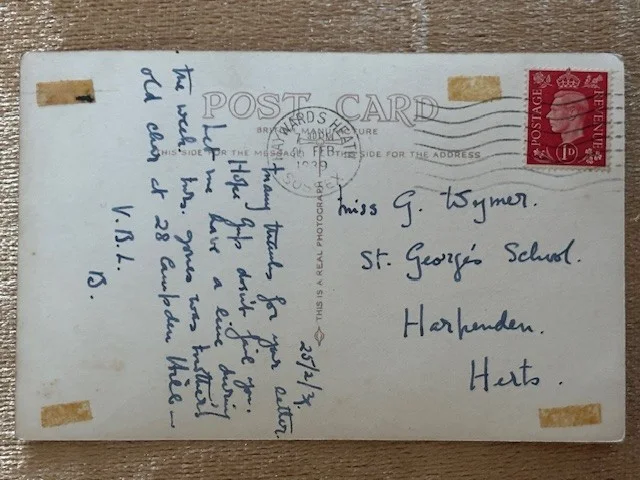 POST CARD
BRITISH MANUFACTURE
THIS SIDE FOR THE MESSAGE
THE SIDE FOR THE ADDRESS
HAYWARDS HEATH
SUSSEX
FEB
1939
POSTAGE
REVENUE
1D
THIS IS A REAL PHOTOGRAPH
25/2/39.
Many thanks for your letter.
Hope Gafs don't fail you.
Let me have a line during
the week. Mrs. Jones was mother's
old char at 28 Campden Hill
V.B.L.
B.
Miss G. Wymer.
St. George's School.
Harpenden.
Herts.